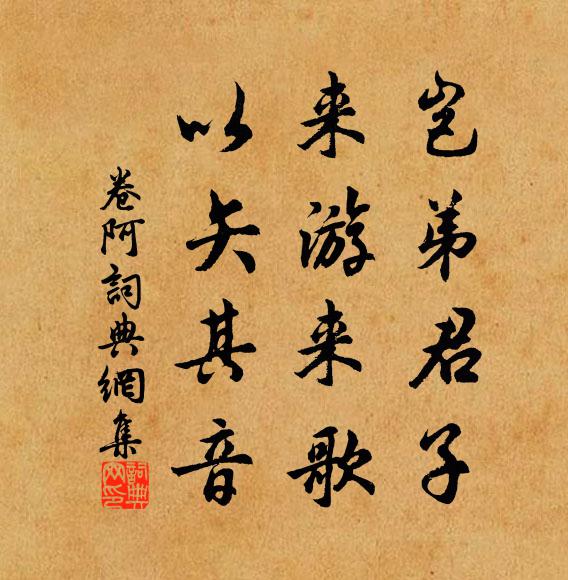 岂弟君子
来游来歌
以矢其音
卷阿詞典網集
詞典网印